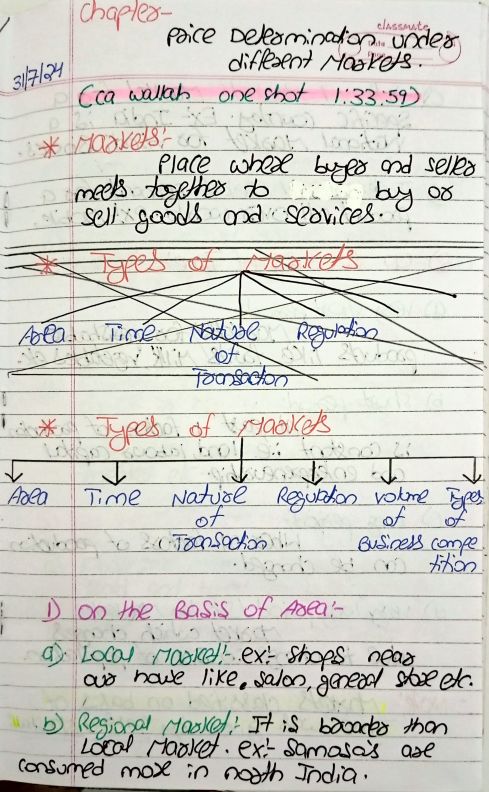 Chapter-
classmate
Price Determination under
different Markets.
31/7/24
(ca wallah one shot 1:33:59)
* Markets:-
Place where buyer and seller
meets together to buy or
sell goods and services.
* Types of Markets
Area Time Nature Regulation
of
Transaction
* Types of Markets
Area Time Nature Regulation volume Types
of of of
Transaction Business compe
tition
1) on the Basis of Area:-
a) Local Market:- ex:- shops near
our house like, salon, general store etc.
b) Regional Market:- It is broader than
Local Market. ex:- Samosa's are
consumed more in north India.